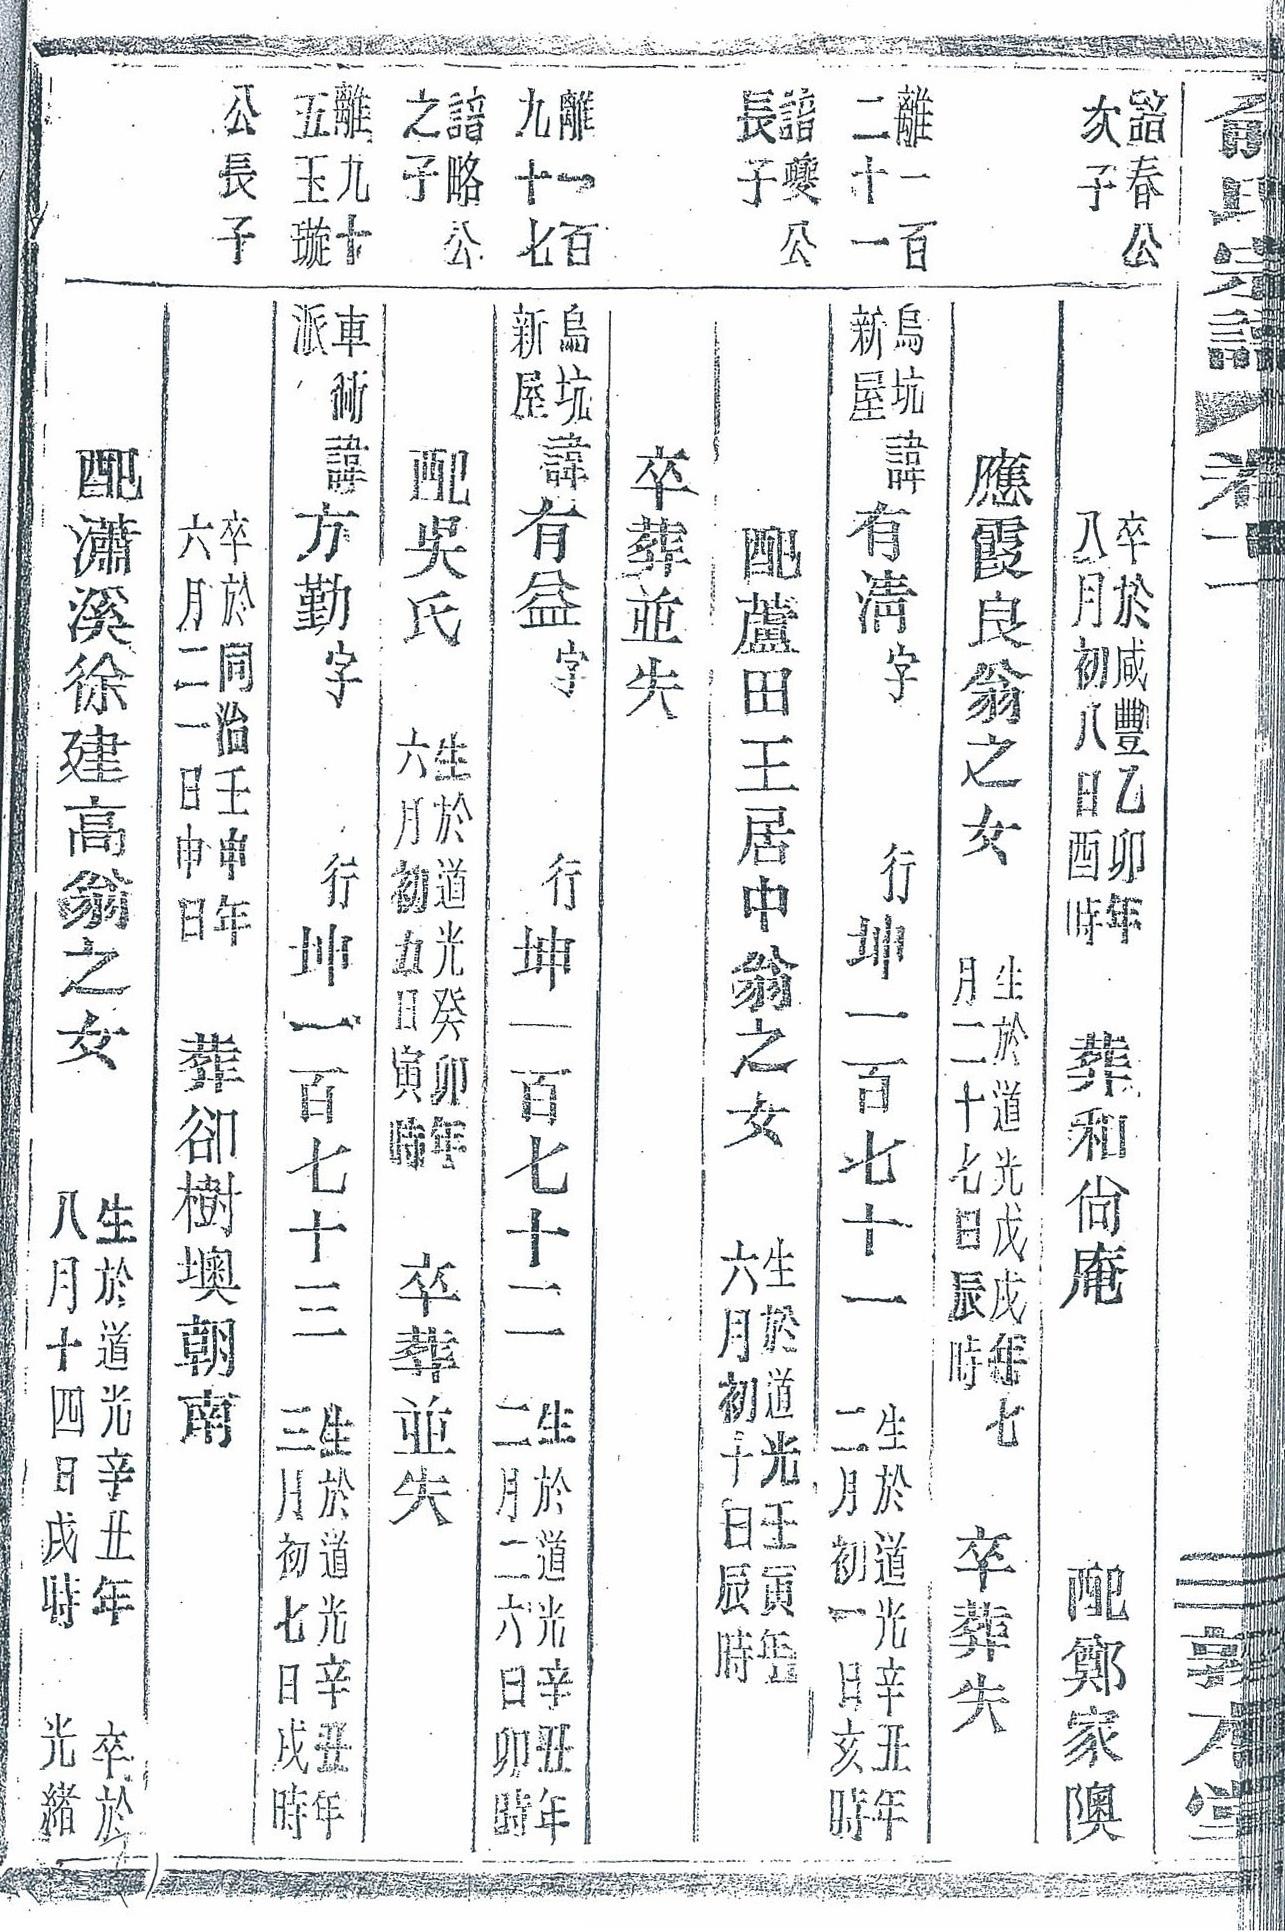 俞氏宗譜 卷十一 敦本堂
諮春公
次子
卒於咸豐乙卯年
八月初八日酉時
葬和尙庵 配鄭家隩
應霞良翁之女
生於道光戊戌年七
月二十七日辰時
卒葬失
離一百
二十一
烏坑
新屋
諱有淸字 行坤一百七十一
生於道光辛丑年
二月初一日亥時
諮夔公
長子
配蘆田王居中翁之女
生於道光壬寅年
六月初十日辰時
卒葬並失
離一百
九十七
烏坑
新屋
諱有益字 行坤一百七十二
生於道光辛丑年
二月二六日卯時
諮略公
之子
配吳氏
生於道光癸卯年
六月初五日寅時
卒葬並失
離九十
五玉璇
車衕
派
諱方勤字 行坤一百七十三
生於道光辛丑年
三月初七日戌時
公長子
卒於同治壬申年
六月二一日申日
葬卻樹墺朝南
配瀟溪徐建高翁之女
生於道光辛丑年
八月十四日戌時
卒於
光緒